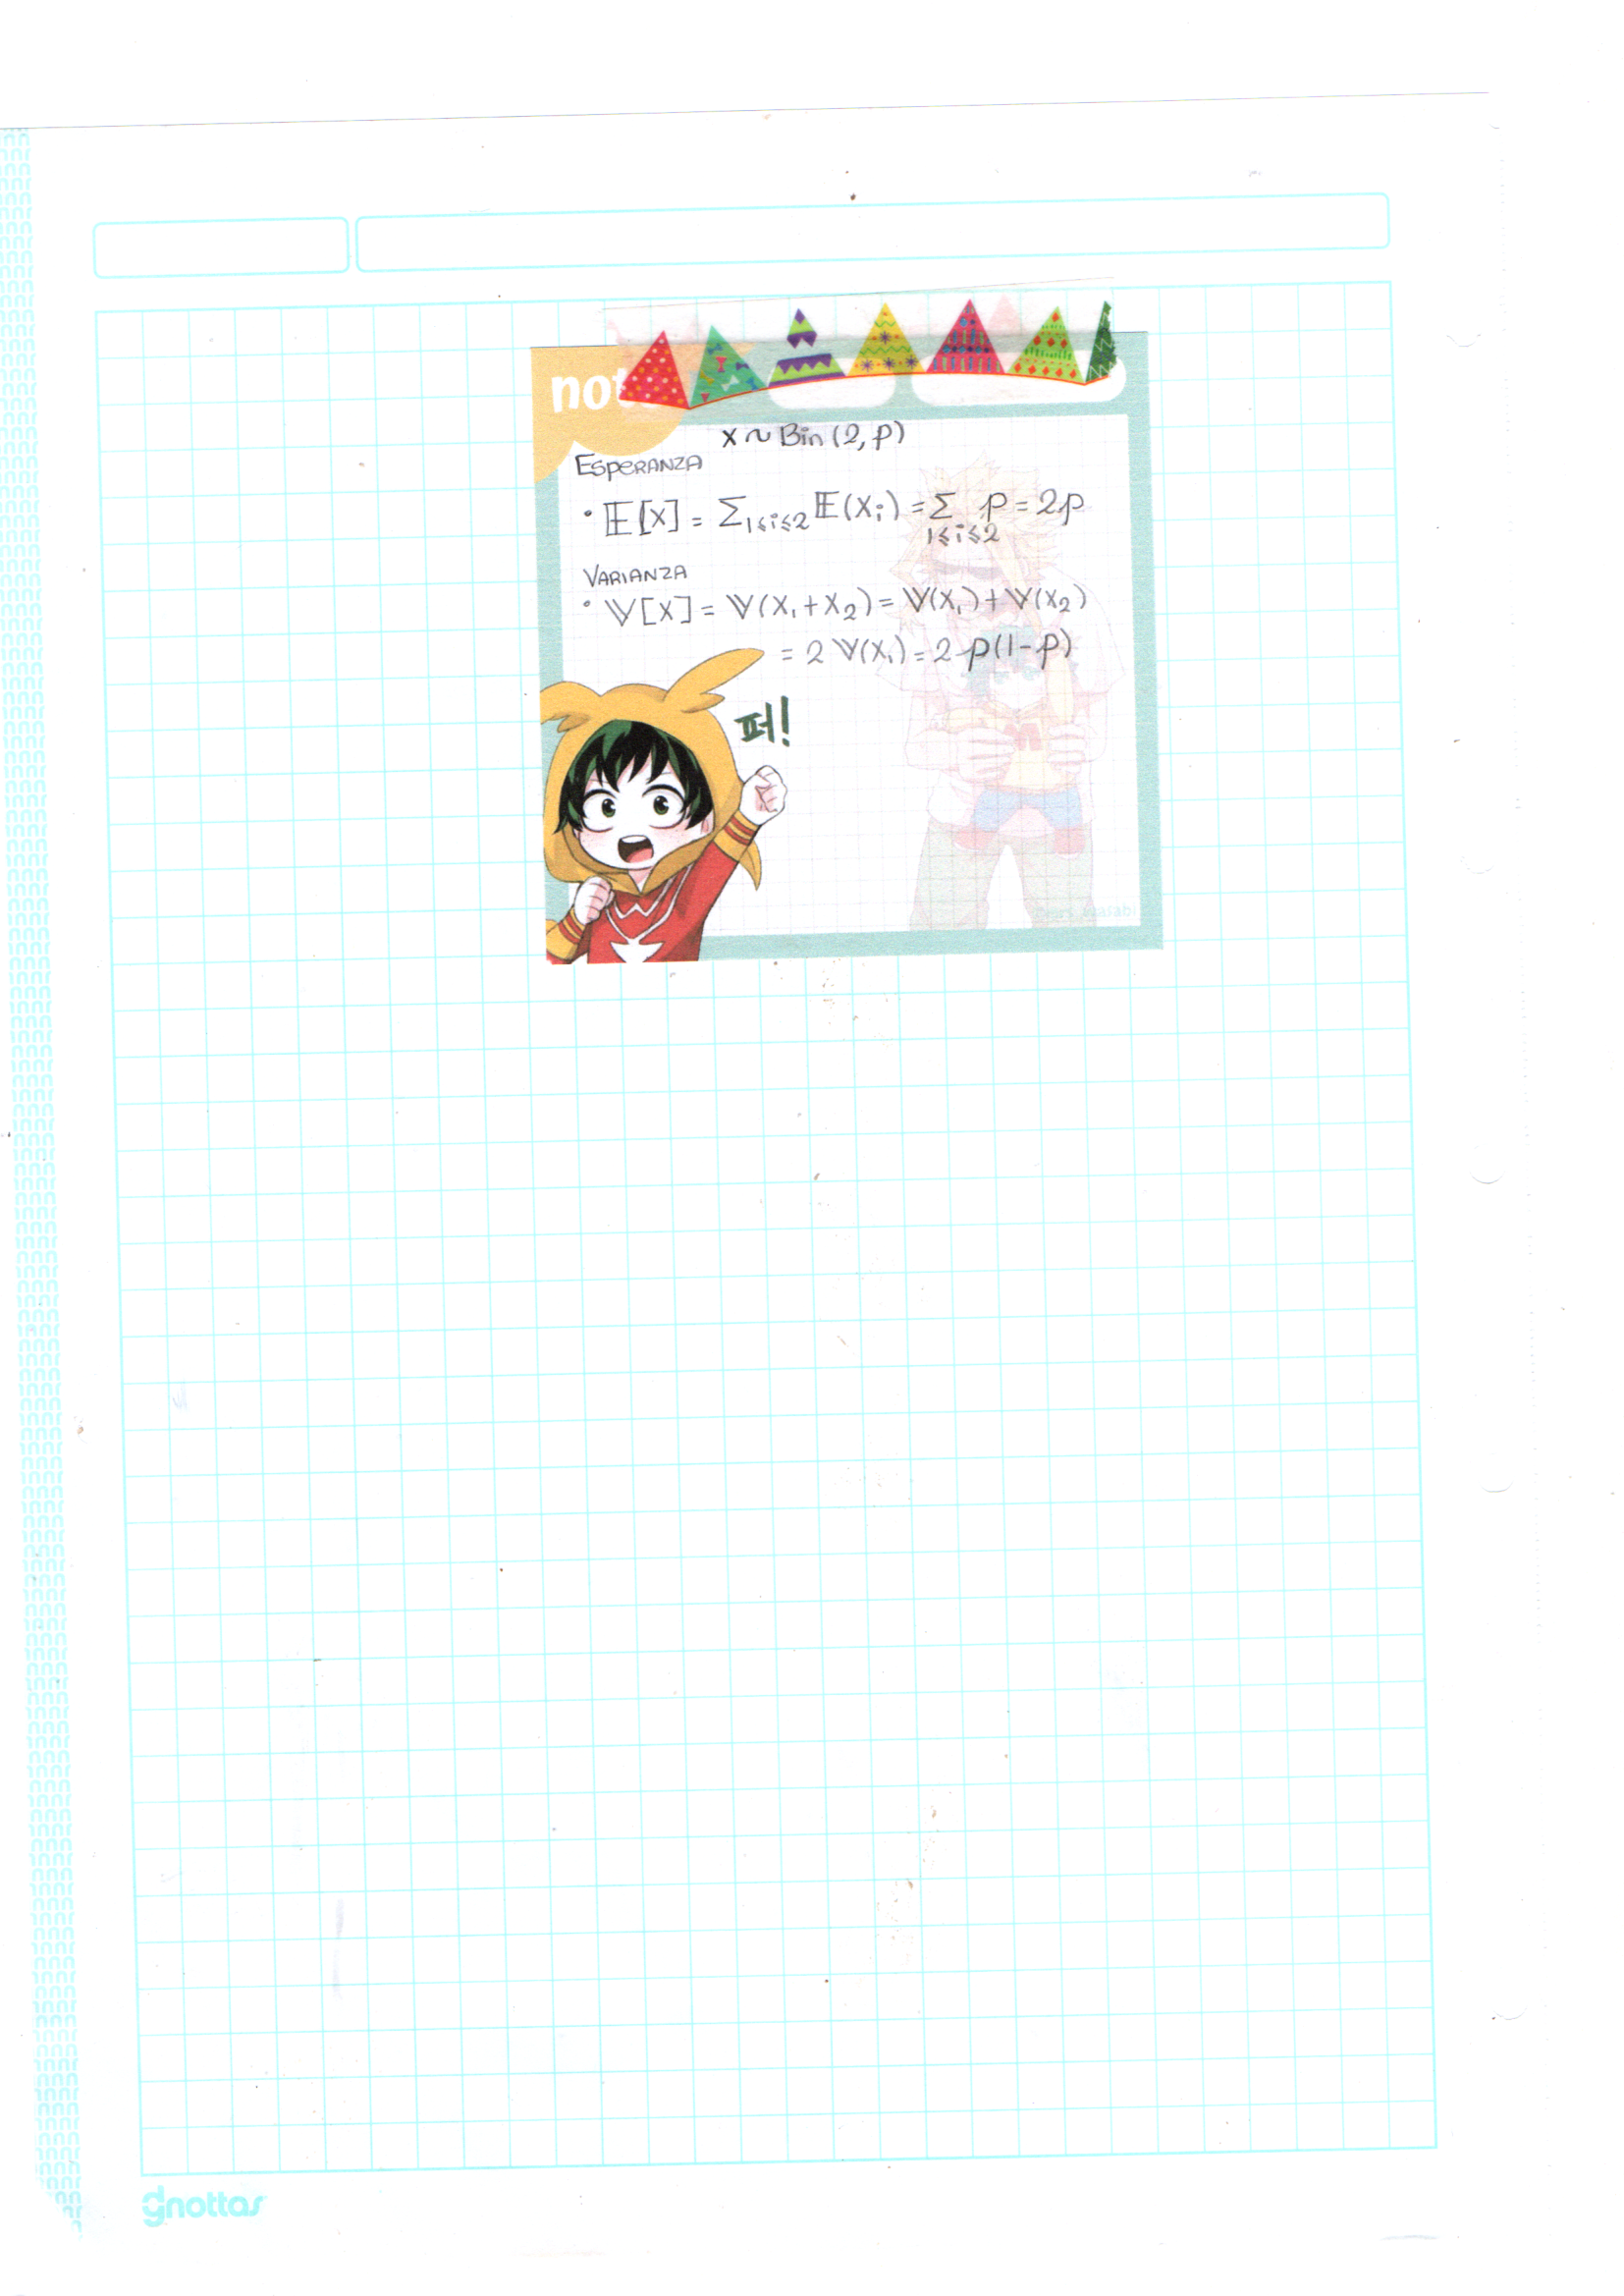 not
X ~ Bin (2, p)
ESPERANZA
• 𝔼[X] = Σ₁≤i≤₂ 𝔼(Xᵢ) = Σ p = 2p
1≤i≤2
VARIANZA
• 𝕍[X] = 𝕍(X₁+X₂) = 𝕍(X₁)+𝕍(X₂)
= 2 𝕍(X₁) = 2 p(1-p)
펴!
gnottas